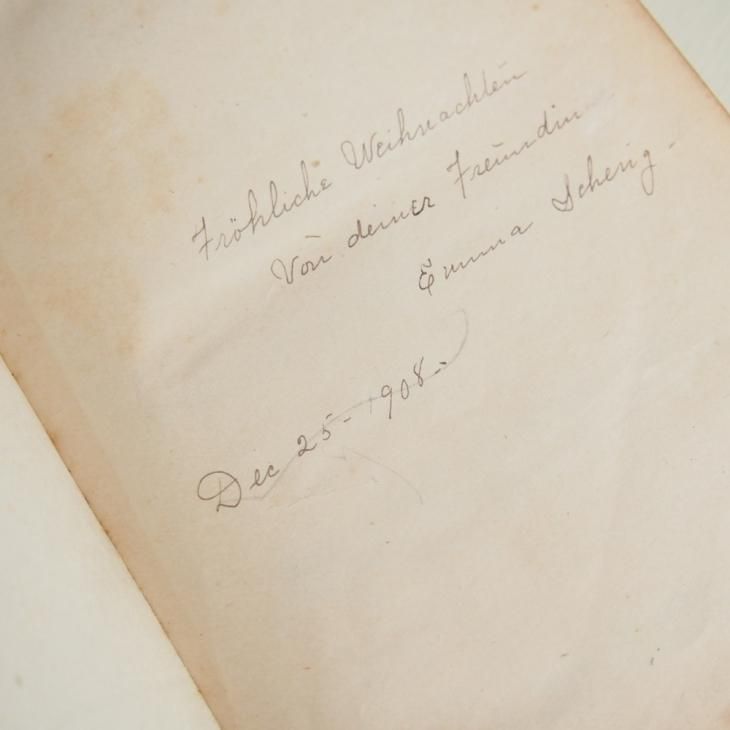 Fröhliche Weihnachten
Von deiner Freundin
Emma Scherig.
Dec 25 - 1908.